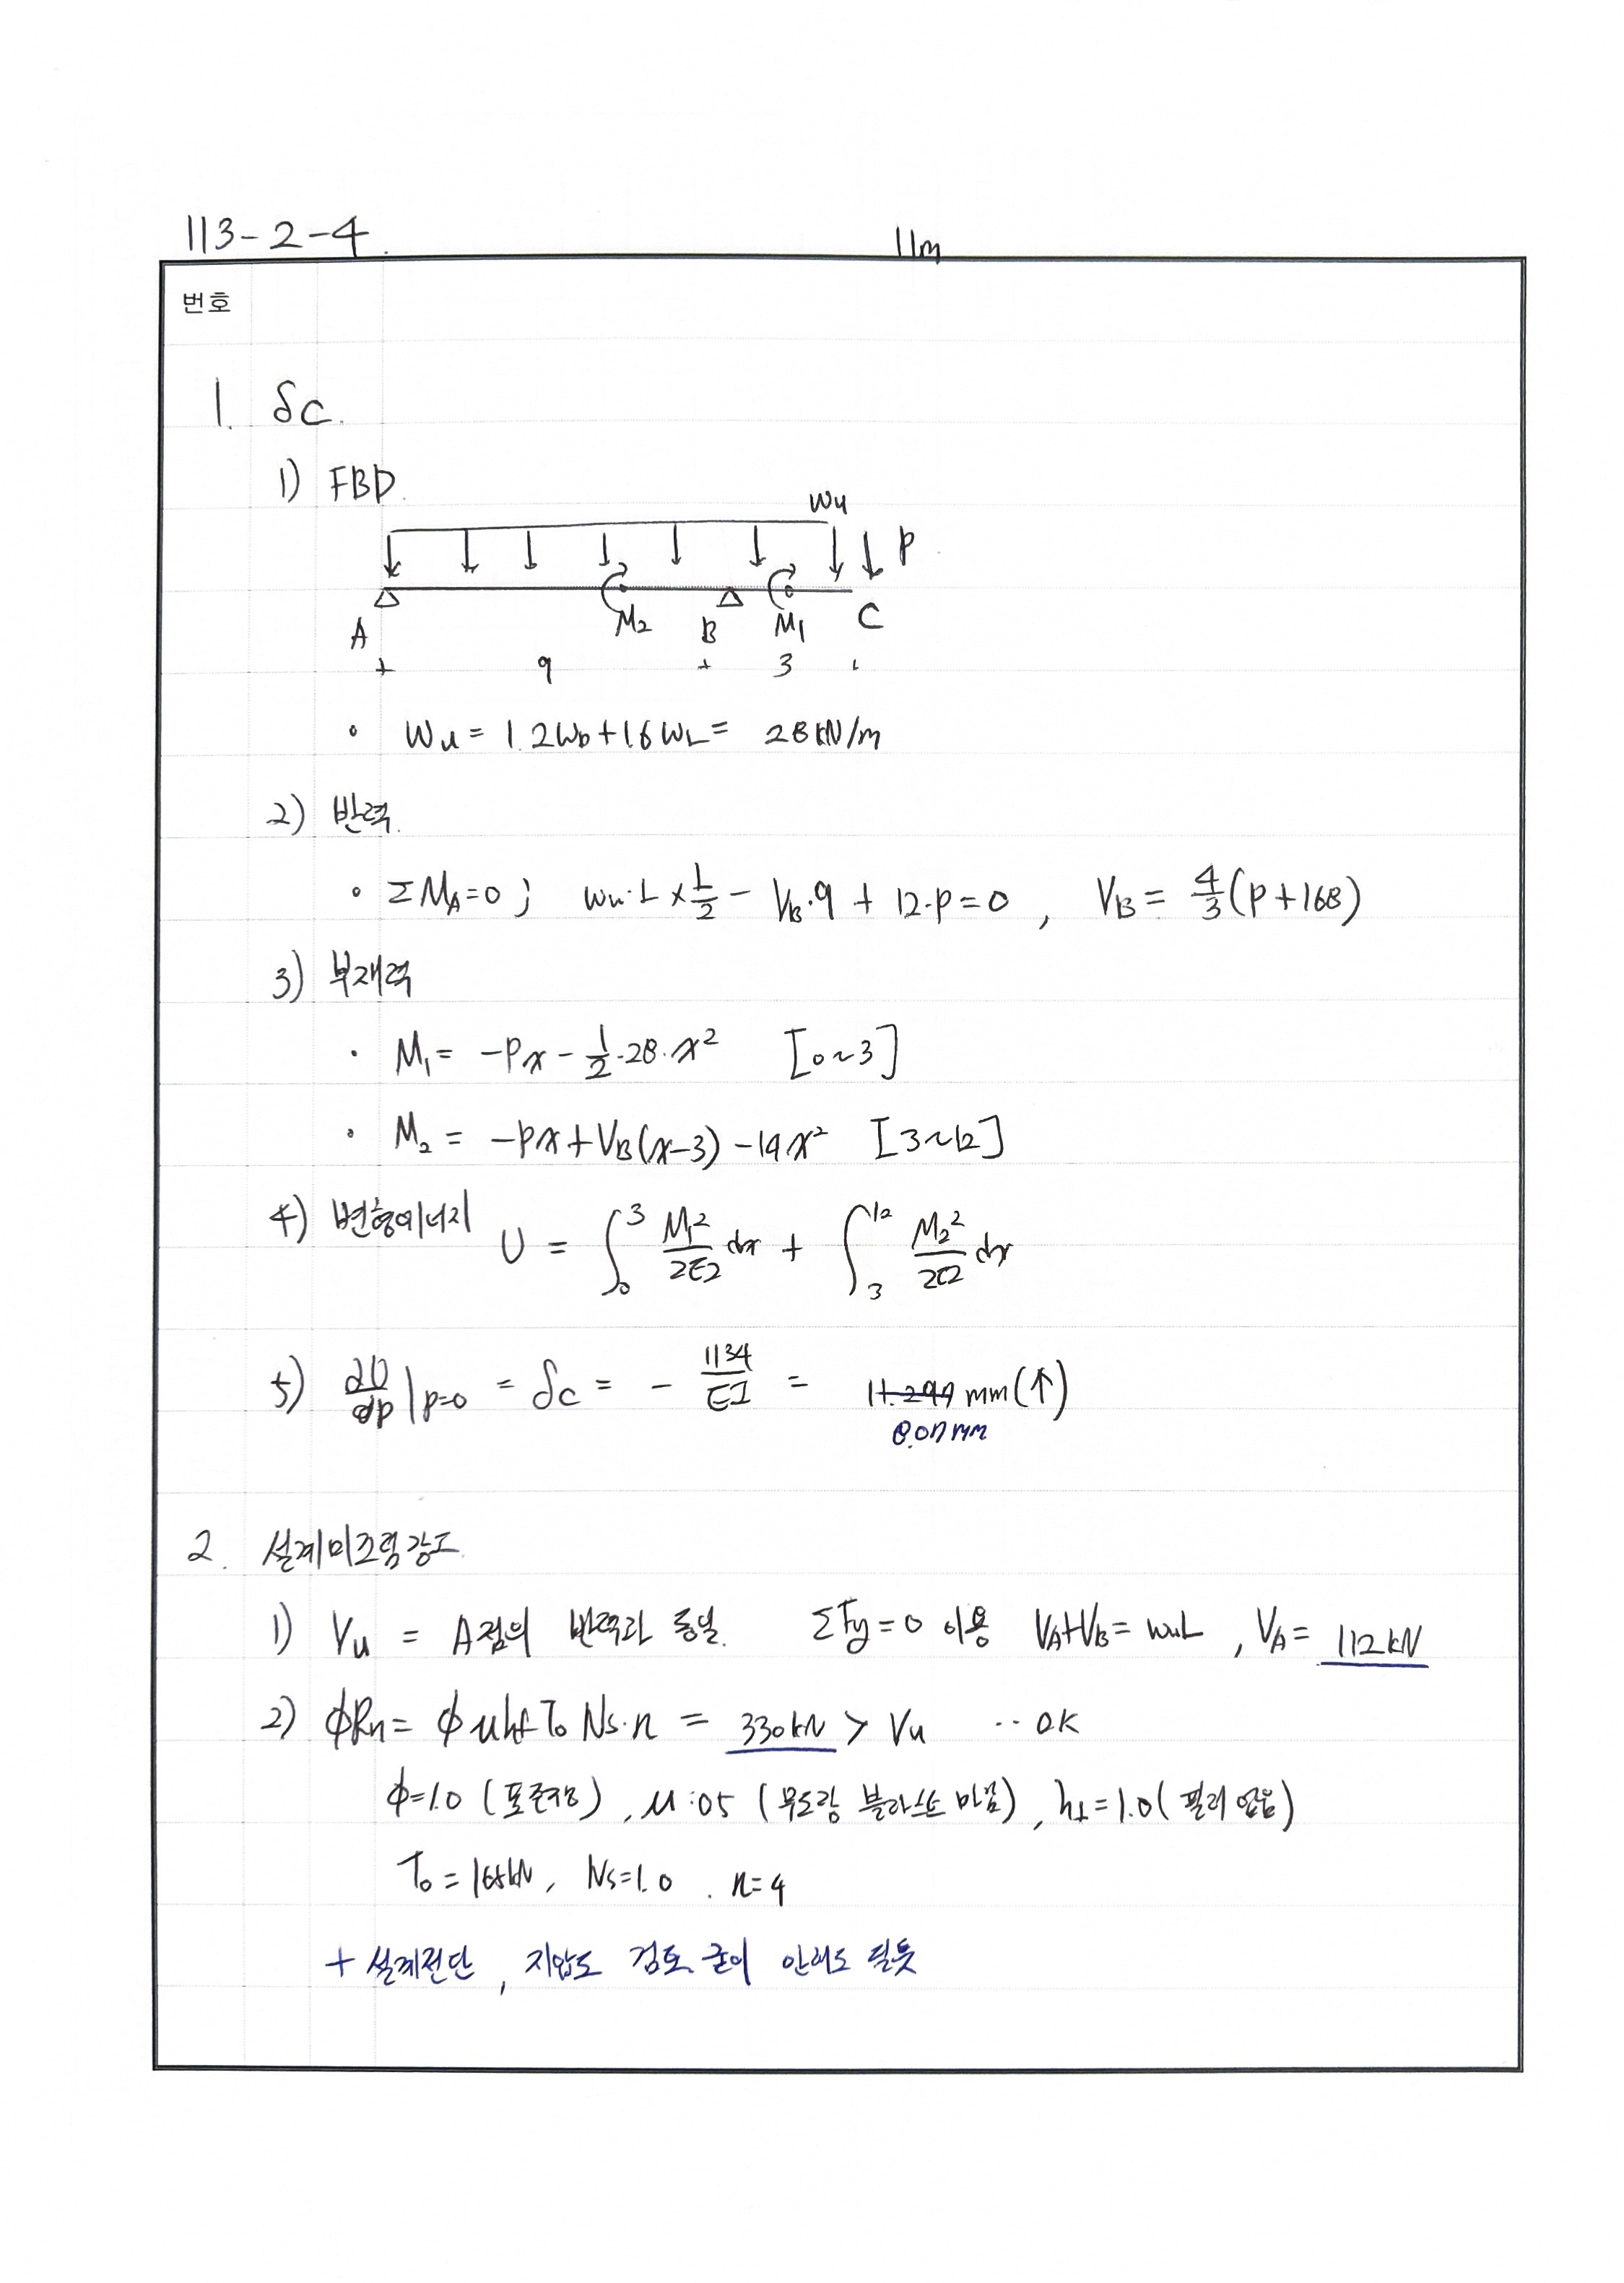 113-2-4.
11m
번호
1. δc.
1) FBD.
wu
P
A M₂ B M₁ C
9 3
• Wu = 1.2WD + 1.6WL = 28 kN/m
2) 반력.
• ΣMA=0 ; wu·L × L/2 - VB·9 + 12·P = 0 , VB = 4/3(P+168)
3) 부재력
• M₁ = -Px - 1/2·28·x² [0~3]
• M₂ = -Px + VB(x-3) - 14x² [3~12]
4) 변형에너지 U = ∫₀³ M₁²/2EI dx + ∫₃¹² M₂²/2EI dx
5) ∂U/∂P|P=0 = δc = - 1134/EI = 11.299 mm(↑)
8.07mm
2. 설계미끄럼강도.
1) Vu = A점의 반력과 동일. ΣFy=0 이용 VA+VB = wuL , VA = 112kN
2) ϕRn = ϕ μ hf To Ns·n = 330kN > Vu ·· OK
ϕ=1.0 (표준구멍) , μ:0.5 (무도장 블라스트 마감) , hf=1.0 (필러 없음)
To = 165kN , Ns=1.0 . n=4
+ 설계전단 , 지압도 검토 굳이 안해도 될듯